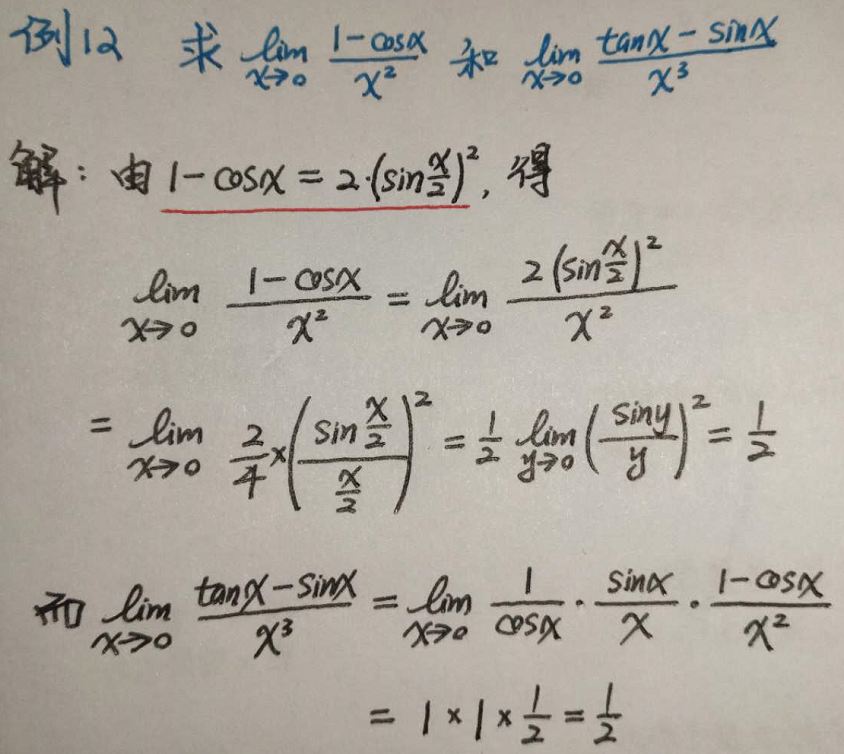 例12 求 lim_{x→0} (1-cosx)/x² 和 lim_{x→0} (tanx-sinx)/x³
解：由 1-cosx = 2·(sin x/2)², 得
lim_{x→0} (1-cosx)/x² = lim_{x→0} 2(sin x/2)²/x²
= lim_{x→0} 2/4 × ((sin x/2)/(x/2))² = 1/2 lim_{y→0} (siny/y)² = 1/2
而 lim_{x→0} (tanx-sinx)/x³ = lim_{x→0} 1/cosx · sinx/x · (1-cosx)/x²
= 1×1×1/2 = 1/2